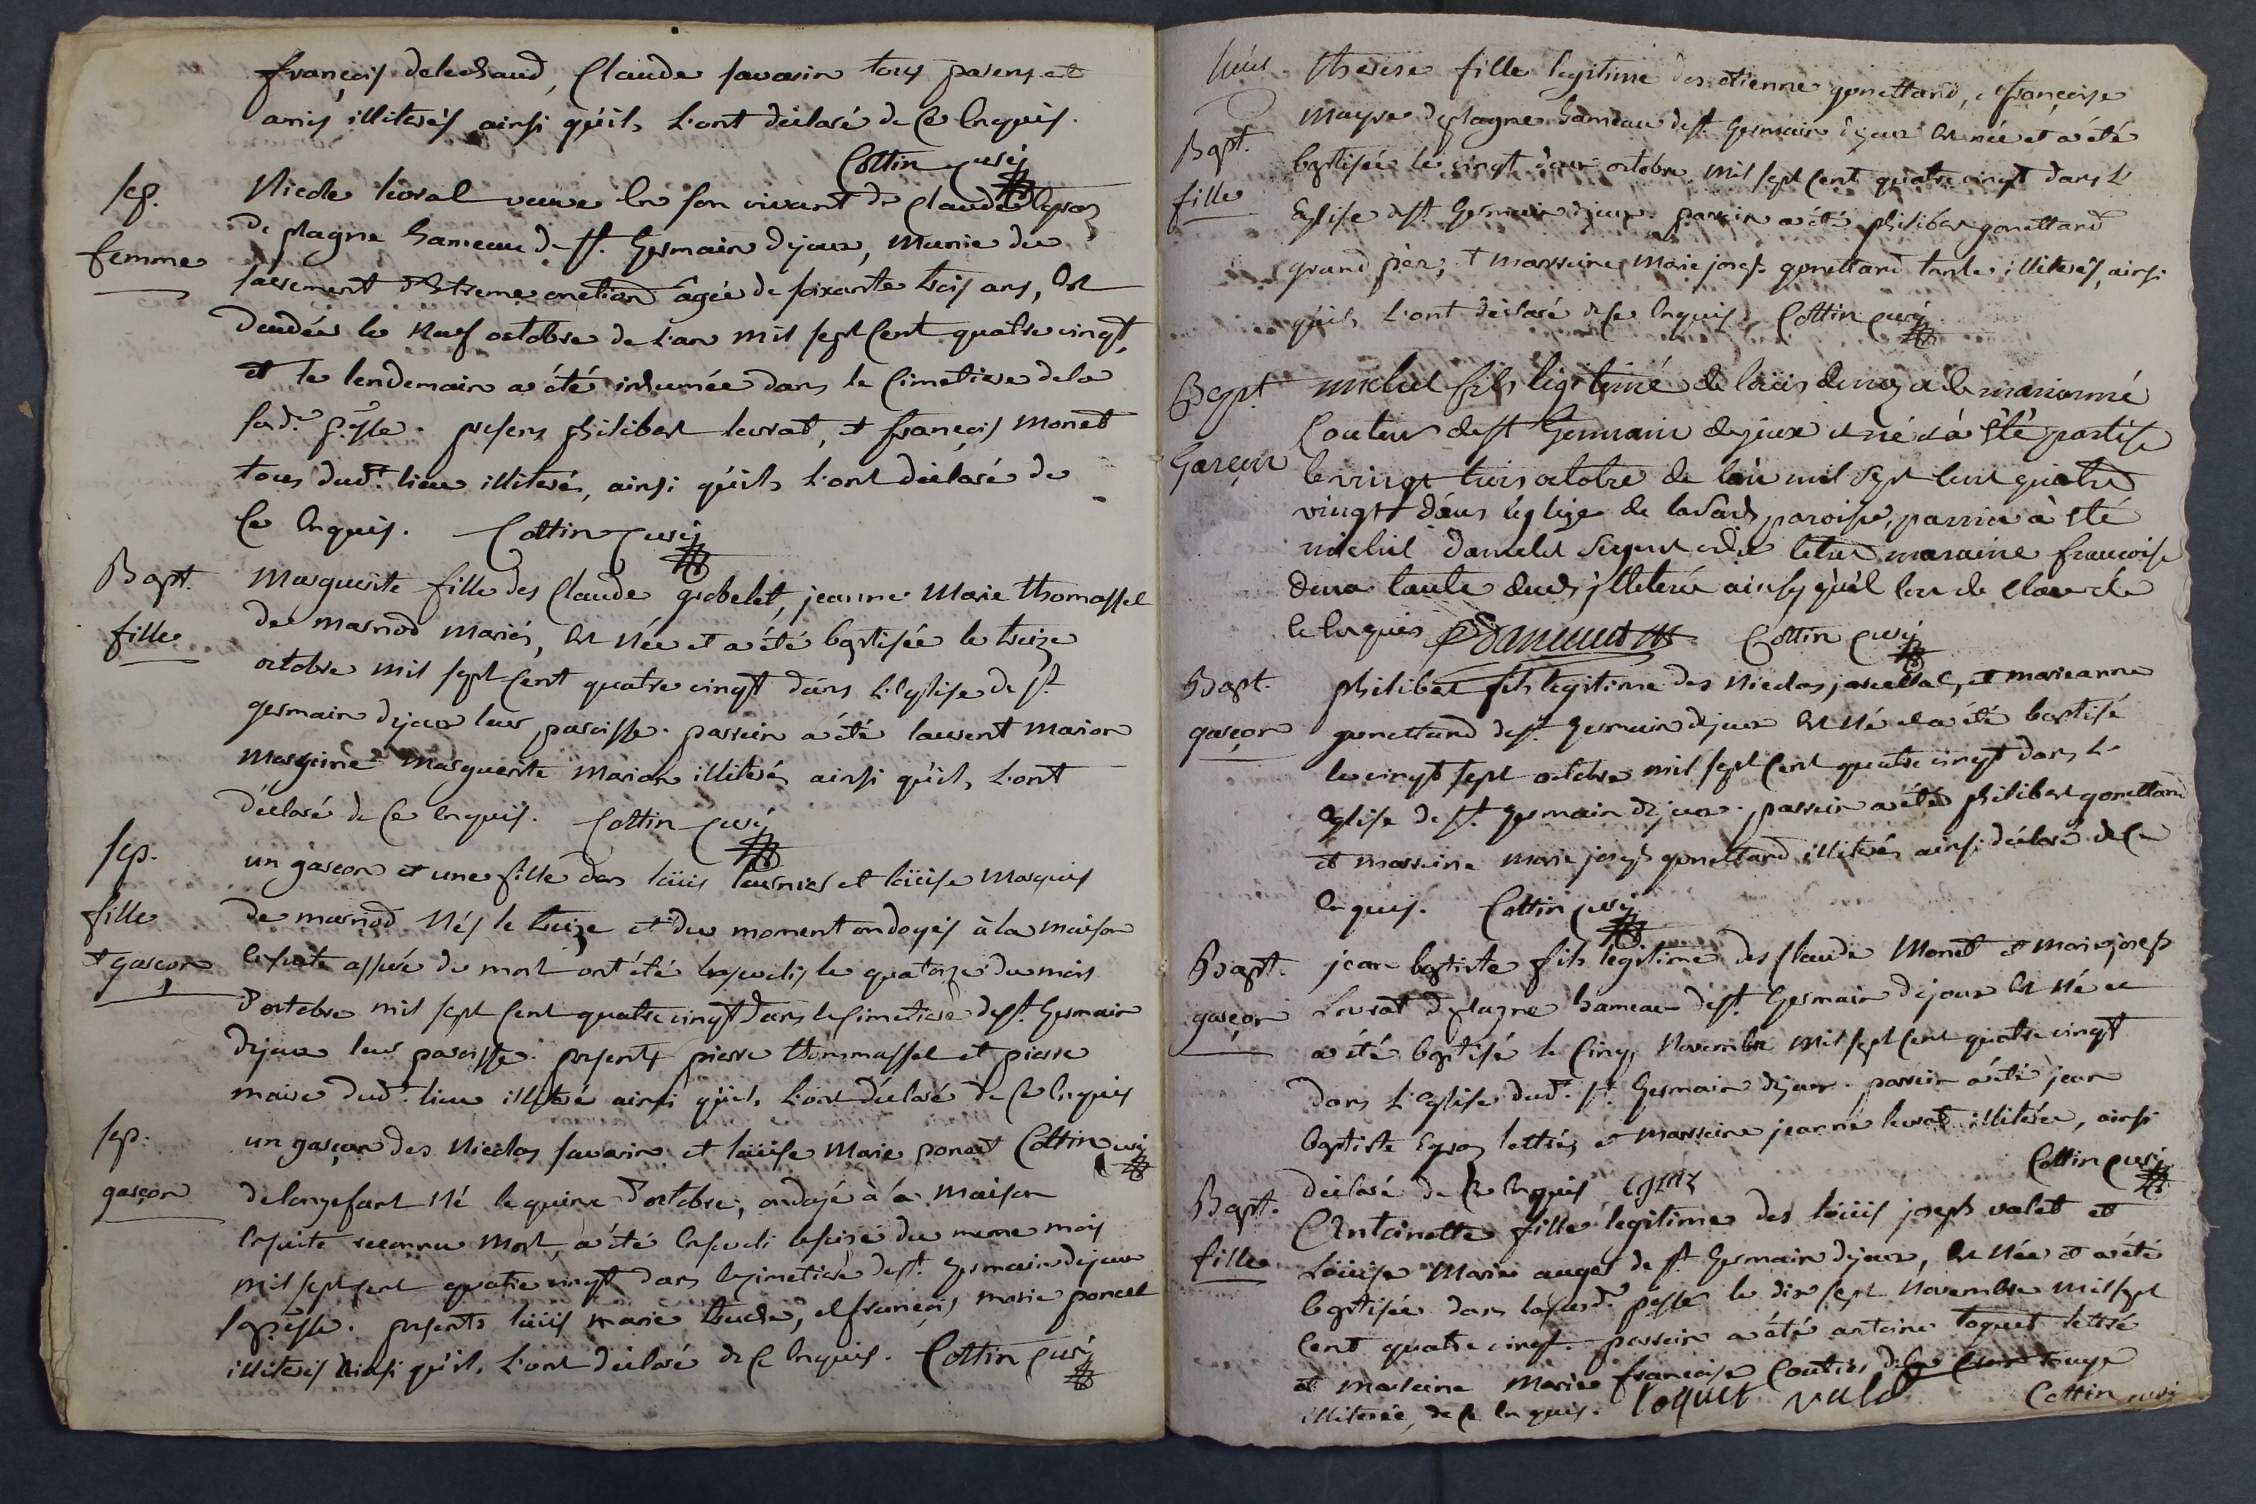 françois delechaud, Claude savarin tous parens et
amis illiterés ainsi qu'ils L'ont déclaré de Ce Enquis.
Cottin curé
sep.
femme
Nicole levrat veuve En son vivant de Claude Egraz
de plagne hameau de st. Germain dejoux, munie du
sacrement d'Extreme onction âgée de soixante trois ans, Est
décédée le Neuf octobre de L'an mil sept Cent quatre vingt,
et le lendemain a été inhumée dans le Cimetiere de la
sud.e p.sse. presens philibert levrat, et françois monet
tous dud.t lieu illiterés, ainsi qu'ils L'ont déclaré de
Ce Enquis. Cottin curé
Bapt.
fille
Marguerite fille des Claude gobelet, jeanne Marie thomasset
de marnod mariés, Est Née et a été baptisée le treize
octobre mil sept Cent quatre vingt dans L'Eglise de st.
germain dejoux leur paroisse. parrein a été laurent marion
marreine Marguerite Marion illiterés ainsi qu'ils L'ont
déclaré de Ce Enquis. Cottin curé
sep.
fille
et garçon
un garçon et une fille des loüis tournier et loüise Marquis
de marnod Nés le treize et du moment ondoyés à la maison
Ensuite assuré de mort ont été Enseveli le quatorze du mois
d'octobre mil sept Cent quatre vingt dans le Cimetiere de st. Germain
dejoux leur paroisse. presents pierre thommasset et pierre
maire dud.t lieu illiteré ainsi qu'ils L'ont déclaré de Ce Enquis
Cottin curé
sep.
garçon
un garçon des Nicolas savarin et loüise Marie poncet
de longefant Né le quinze d'octobre, ondoyé à la maison
Ensuite reconnu Mort, a été Enseveli le seize du meme mois
mil sept Cent quatre vingt dans le Cimetiere de st. Germain dejoux
sa p.sse. presents loüis marie, et françois marie poncet
illiterés ainsi qu'ils L'ont déclaré de Ce Enquis. Cottin curé
Bapt.
fille
therese fille legitime des etienne gonettand, et françoise
mayre de plagne hameau de st. Germain dejoux Est née et a été
baptisée le vingt deux octobre mil sept Cent quatre vingt dans L'
Eglise de st. Germain dejoux. parrein a été philibert gonettand
grand pere, et marreine marie joseph gonettand tante illiterés, ainsi
qu'ils L'ont déclaré de Ce Enquis. Cottin curé
Bapt.
Garçon
michel fils legitime de loüis et de marianne
Coutier de st Germain dejoux et né et à été
le vingt trois octobre de l'an mil sept Cent quatre
vingt dans l'église de paroisse, parrin à été
michel marraine francoise
tante illeterée ainsy qu'il lon declare de
Ce Enquis Cottin curé
Bapt.
garçon
philibert fils legitime des Nicolas, et marieanne
gonettand de st. germain dejoux Est Né et a été baptisé
le vingt sept octobre mil sept Cent quatre vingt dans L'
Eglise de st. germain dejoux. parrein a été philibert gonettand
et marreine marie joseph gonettand illiterés ainsi déclaré de Ce
Enquis. Cottin curé
Bapt.
garçon
jean baptiste fils legitime des Claude Monet et marie joseph
Levrat de plagne hameau de st. Germain dejoux Est Né et
a été baptisé le Cinq Novembre mil sept Cent quatre vingt
dans L'Eglise dud.t st. Germain dejoux. parrein a été jean
baptiste Egraz lettré, et marreine jeanne levrat illiterée, ainsi
déclaré de Ce Enquis Egraz Cottin curé
Bapt.
fille
Antoinette fille legitime des loüis joseph valet et
Loüise Marie auger de st. Germain dejoux, Est Née et a été
baptisée dans la sud.e p.sse le dix sept Novembre mil sept
Cent quatre vingt. parrein a été antoine toquet lettré
et marreine Marie françoise Coutier
illiterée, de Ce Enquis. toquet valet Cottin curé